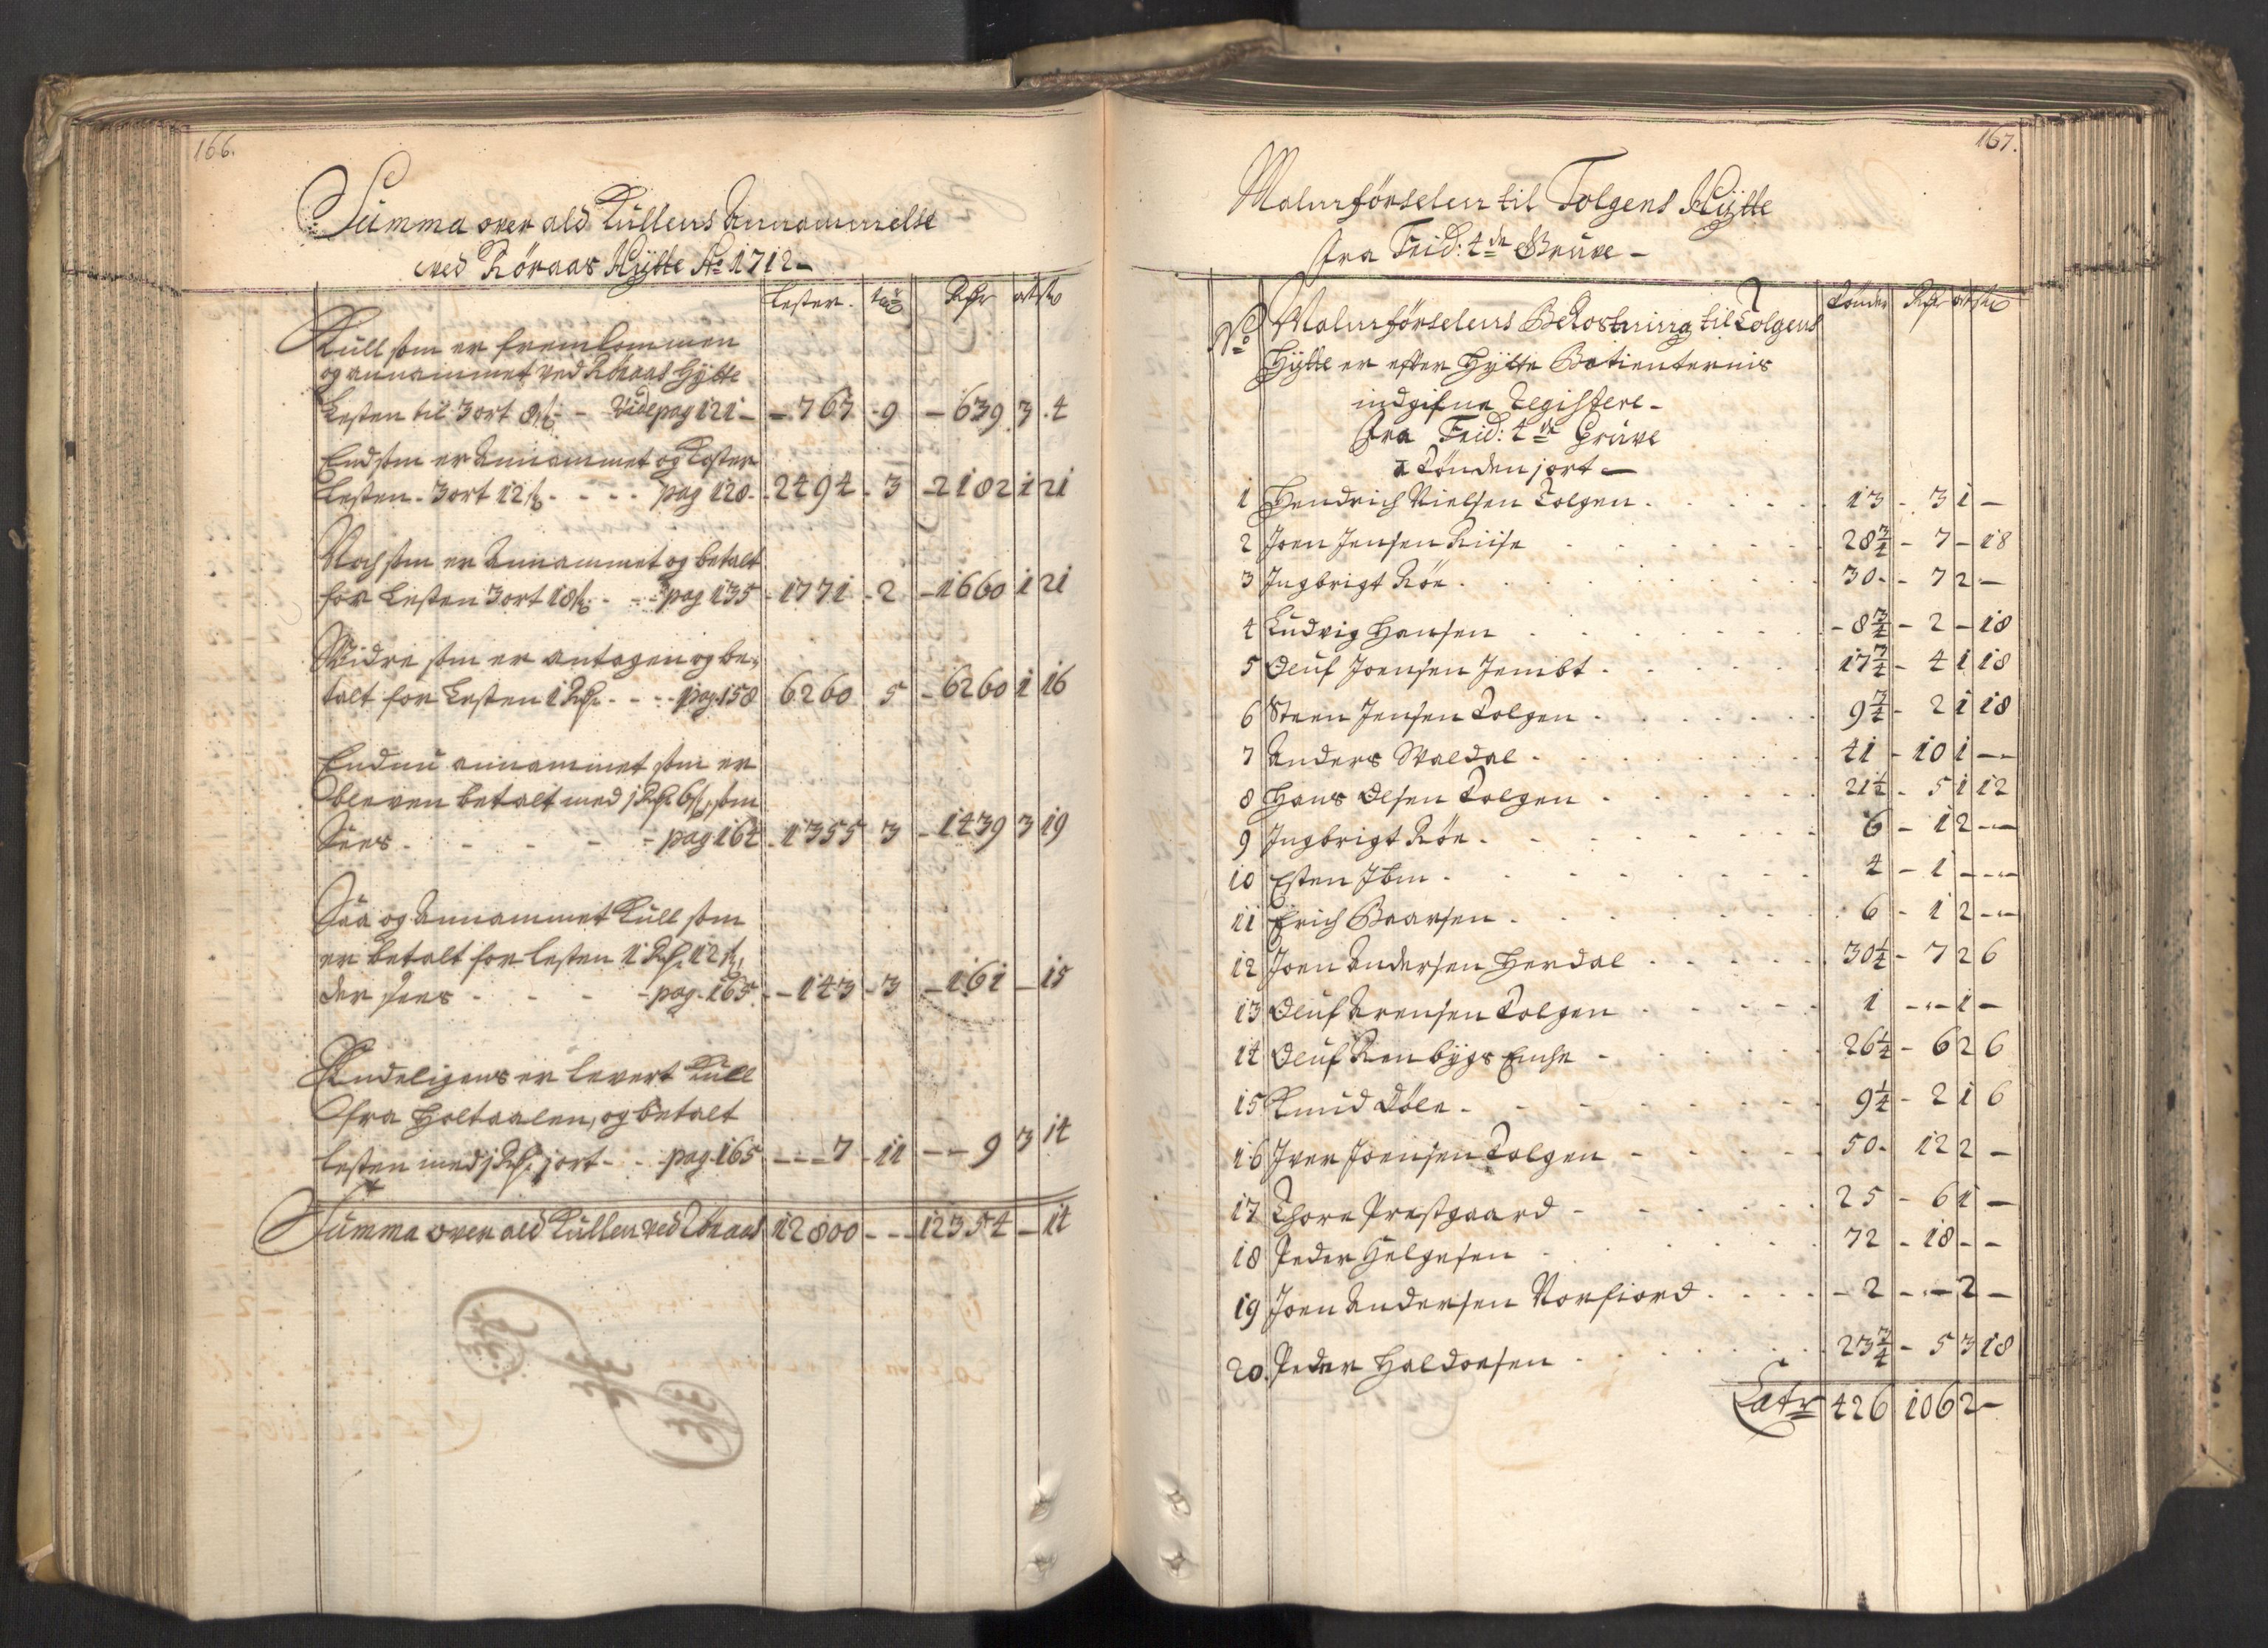 166.
Summa over ald Kullens Annammelse
ved Röraas Hÿtte Aō 1712 –
Lester. Rdr ort
Kull som er fremkommen
og annammet ved Röraas Hÿtte
Lesten til 3 ort 8 s – Vide pag 121 – 767 - 9 – 639 3 . 4
End som er Annammet og Koster
Lesten - 3 ort 12 s - - - pag 128 - 2494 - 3 - 2182 1 21
Noch som er Annammet og betalt
for Lesten 3 ort 18 s - - - pag 135 - 1771 - 2 - 1660 1 21
Widre som er antagen og be-
talt for Lesten 1 Rdr - - - pag. 158 6260 5 - 6260 1 16
Endnu annammet som er
bleven betalt med j Rdr 6 s, som
Sees - - - - - pag 164 - 1355 3 - 1439 3 19
Saa og Annammet Kull som
er betalt for Lesten 1 Rdr 12 s,
der sees - - - - pag. 165. - 143 - 3 - 161 - 15
Endeligens er levert Kull
fra Holtaalen, og betalt
Lesten med j Rdr j ort - - pag. 165 - - - 7 - 11 - - 9 3 14
Summa over ald Kullen ved Röraas 12800 - - - 12354 - 14
167.
Malmförselen til Tolgens Hÿtte
fra Frid: 4de Grüve –
Tönder Rdr ort
No Malmförselens Bekostning til Tolgens
Hÿtte er efter Hÿtte Betienternis
indgifne Registere –
fra Frid: 4de Grüve
a Tönden j ort –
1 Hendrich Nielsen Tolgen - - - 13 - 3 1 –
2 Joen Jensen Riise - - - 28 3/4 - 7 - 18
3 Ingbrigt Röe - - - 30 - - 7 2 –
4 Ludvig Hansen - - - 8 3/4 - 2 - 18
5 Oluf Joensen Jembt - - - 17 3/4 - 4 1 18
6 Steen Jensen Tolgen - - - 9 3/4 - 2 1 18
7 Anders Waldal - - - 41 - 10 1 –
8 Hans Olsen Tolgen - - - 21 1/2 - 5 1 12
9 Ingbrigt Röe - - - 6 - 1 2 –
10 Esten Ibm - - - 4 - 1 - –
11 Erich Baarsen - - - 6 - 1 2 –
12 Joen Andersen Herdal - - - 30 1/4 - 7 2 6
13 Oluf Arensen Tolgen - - - 1 - - 1 –
14 Oluf - - - 26 1/4 - 6 2 6
15 Knud Döle - - - 9 1/4 - 2 1 6
16 Iver Joensen Tolgen - - - 50 - 12 2 –
17 Thore Prestgaard - - - 25 - 6 1 –
18 Peder Helgesen - - - 72 - 18 - –
19 Joen Andersen Norfiord - - - 2 - - 2 –
20. Peder Haldorsen - - - 23 3/4 - 5 3 18
Latr 426 106 2 –